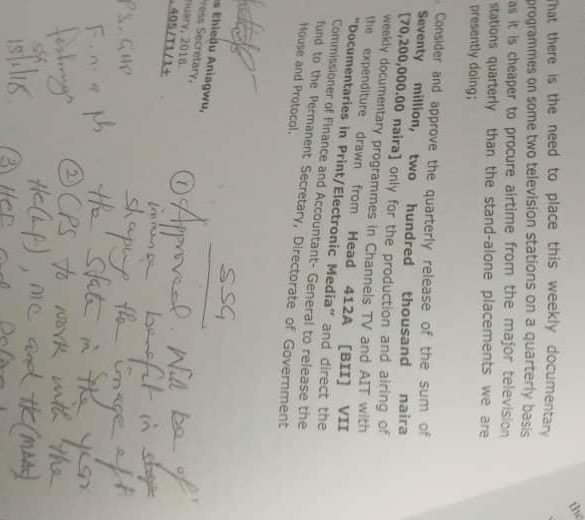 hat there is the need to place this weekly documentary
programmes on some two television stations on a quarterly basis
as it is cheaper to procure airtime from the major television
stations quarterly than the stand-alone placements we are
presently doing;
Consider and approve the quarterly release of the sum of
Seventy million, two hundred thousand naira
[70,200,000.00 naira] only for the production and airing of
weekly documentary programmes in Channels TV and AIT with
the expenditure drawn from Head 412A [BII] VII
"Documentaries in Print/Electronic Media" and direct the
Commissioner of Finance and Accountant- General to release the
fund to the Permanent Secretary, Directorate of Government
House and Protocol.
s Ehiedu Aniagwu,
ress Secretary,
nuary, 2018.
SSG
① Approved. Will be of
immense benefit in
shaping the image of
the State in the year
② CPS to work with the
HC(I), MC and HC
③ HCF and
PS, GHP
F. n. a pls
18/1/18.